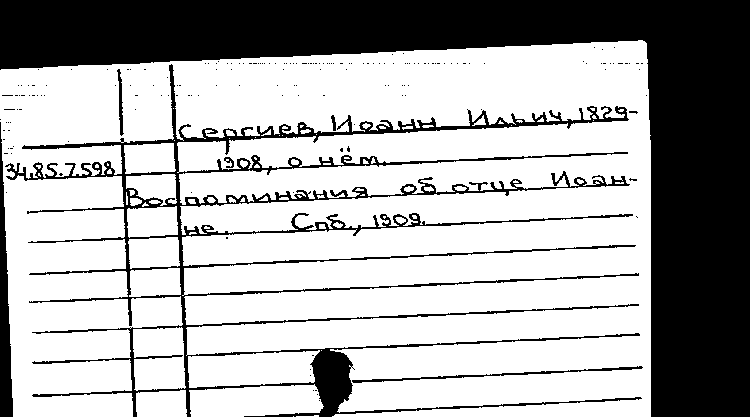 Сергиев, Иоанн Ильич, 1829-
34.85.7.598 1908, о нём.
Воспоминания об отце Иоан-
не. Спб., 1909.